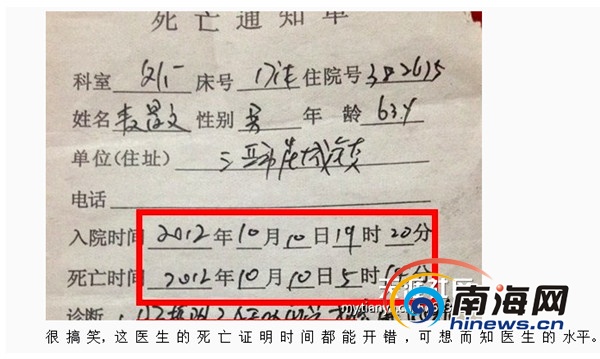 死亡通知单
科室 外一 床号 门诊 住院号 382615
姓名 文 性别 男 年龄 63岁
单位(住址) 三亚市崖城镇
电话
入院时间 2012年10月10日19时20分
死亡时间 2012年10月10日5时 分
诊断:
南海网
www.hinews.cn
很搞笑,这医生的死亡证明时间都能开错,可想而知医生的水平。